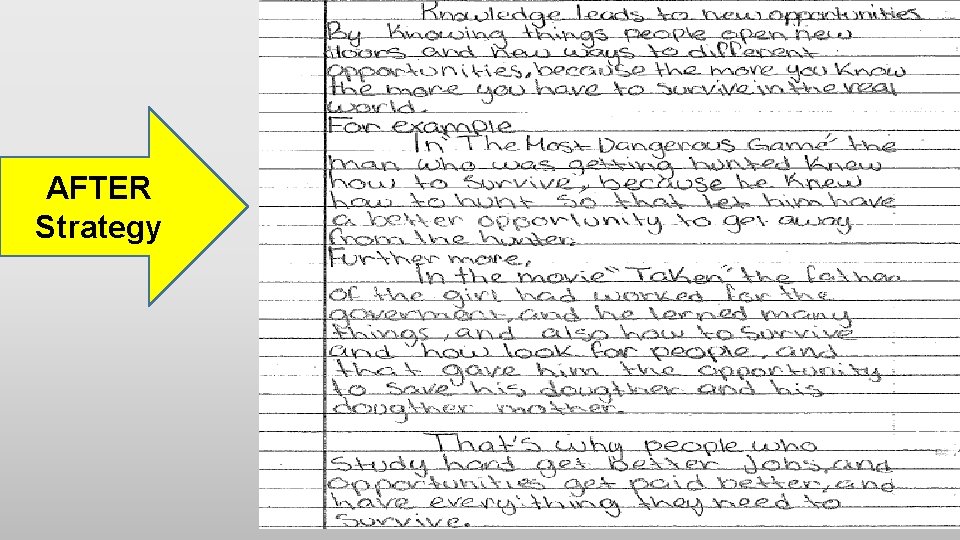 AFTER
Strategy
Knowledge leads to new opportunities
By Knowing things people open new
doors and new ways to different
opportunities, because the more you know
the more you have to survive in the real
world.
For example
In "The Most Dangerous Game" the
man who was getting hunted knew
how to survive, because he knew
how to hunt so that let him have
a better opportunity to get away
from the hunter.
Further more,
In the movie "Taken" the father
of the girl had worked for the
goverment, and he lerned many
things, and also how to survive
and how look for people, and
that gave him the opportunity
to save his dougther and his
dougther mother.
That's why people who
study hard get better jobs, and
opportunities get paid better, and
have everything they need to
survive.